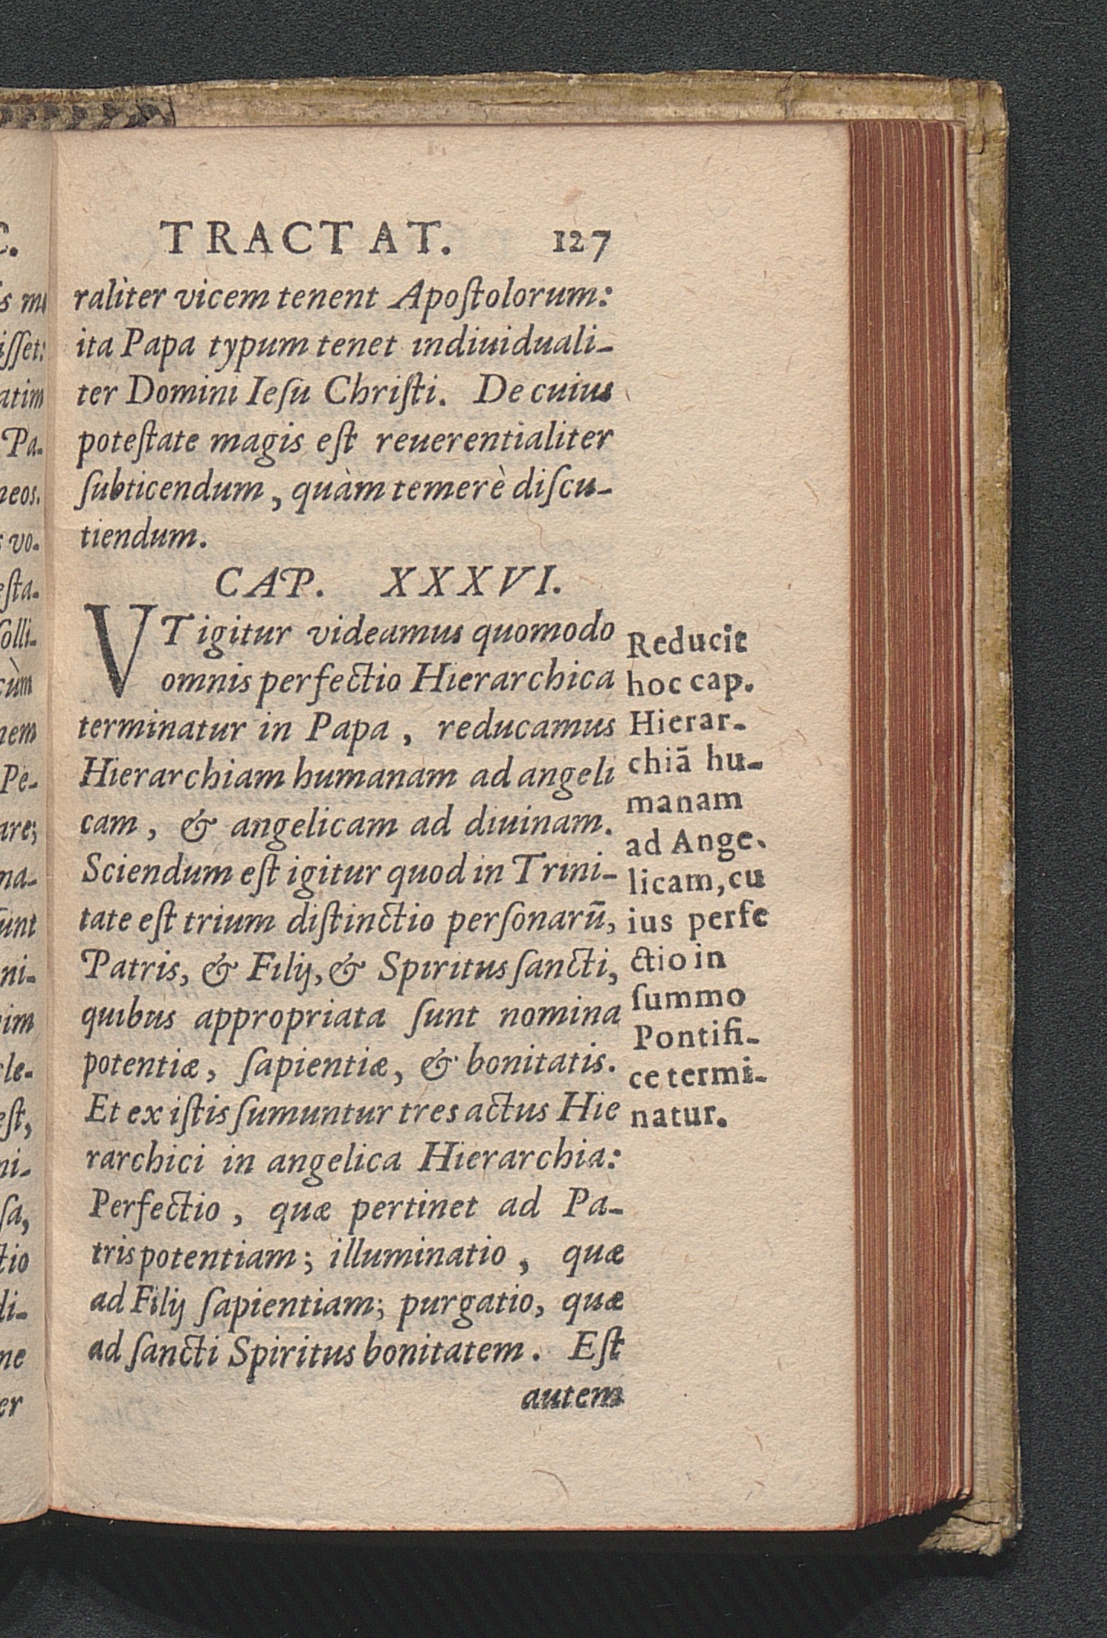 TRACTAT. 127
raliter vicem tenent Apoſtolorum:
ita Papa typum tenet indiuiduali-
ter Domini Ieſu Chriſti. De cuius
poteſtate magis eſt reuerentialiter
ſubticendum, quàm temerè diſcu-
tiendum.
CAP. XXXVI.
VT igitur videamus quomodo
omnis perfectio Hierarchica
terminatur in Papa, reducamus
Hierarchiam humanam ad angeli
cam, & angelicam ad diuinam.
Sciendum eſt igitur quod in Trini-
tate eſt trium diſtinctio perſonarū,
Patris, & Filij, & Spiritus ſancti,
quibus appropriata ſunt nomina
potentiæ, ſapientiæ, & bonitatis.
Et ex iſtis ſumuntur tres actus Hie
rarchici in angelica Hierarchia:
Perfectio, quæ pertinet ad Pa-
tris potentiam; illuminatio, quæ
ad Filij ſapientiam; purgatio, quæ
ad ſancti Spiritus bonitatem. Eſt
autem
Reducit
hoc cap.
Hierar-
chiā hu-
manam
ad Ange-
licam, cu
ius perfe
ctio in
ſummo
Pontifi-
ce termi-
natur.